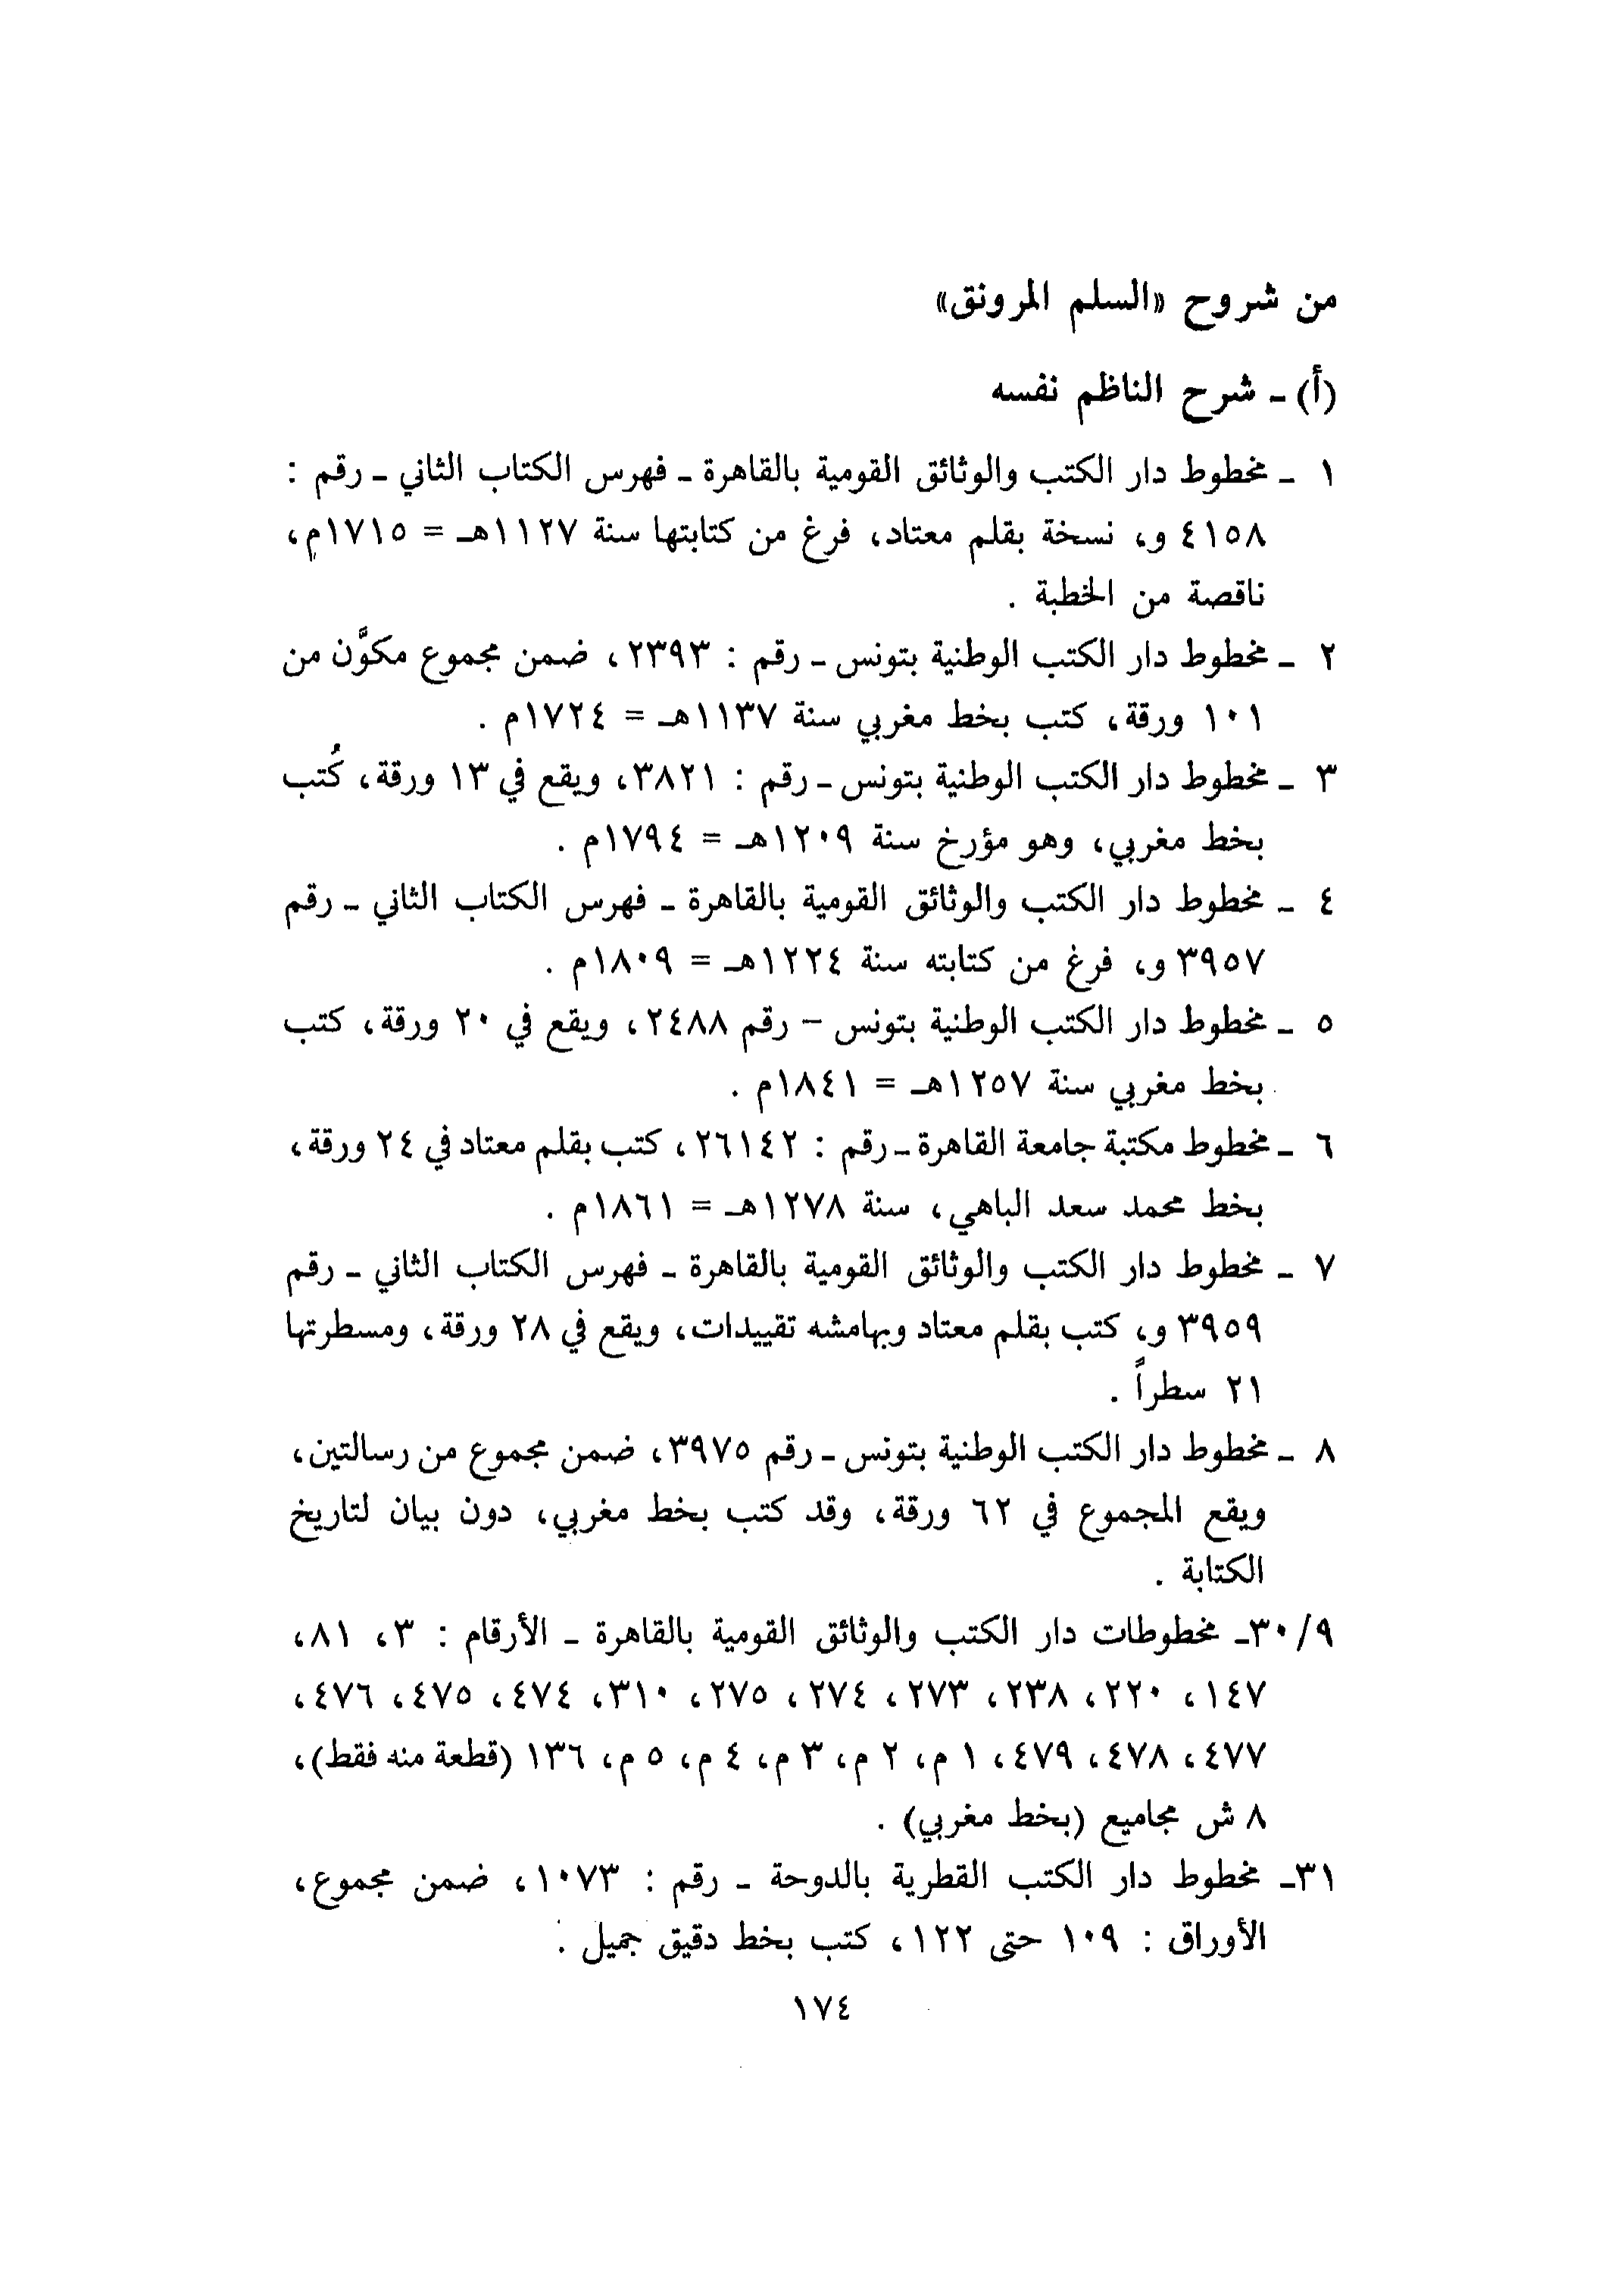 من شروح «السلم المرونق»
(أ) ـ شرح الناظم نفسه
١ ـ مخطوط دار الكتب والوثائق القومية بالقاهرة ـ فهرس الكتاب الثاني ـ رقم :
٤١٥٨ و، نسخة بقلم معتاد، فرغ من كتابتها سنة ١١٢٧هـ = ١٧١٥م،
ناقصة من الخطبة .
٢ ـ مخطوط دار الكتب الوطنية بتونس ـ رقم : ٢٣٩٣، ضمن مجموع مكوَّن من
١٠١ ورقة، كتب بخط مغربي سنة ١١٣٧هـ = ١٧٢٤م .
٣ ـ مخطوط دار الكتب الوطنية بتونس ـ رقم : ٣٨٢١، ويقع في ١٣ ورقة، كُتب
بخط مغربي، وهو مؤرخ سنة ١٢٠٩هـ = ١٧٩٤م .
٤ ـ مخطوط دار الكتب والوثائق القومية بالقاهرة ـ فهرس الكتاب الثاني ـ رقم
٣٩٥٧ و، فرغ من كتابته سنة ١٢٢٤هـ = ١٨٠٩م .
٥ ـ مخطوط دار الكتب الوطنية بتونس – رقم ٢٤٨٨، ويقع في ٢٠ ورقة، كتب
بخط مغربي سنة ١٢٥٧هـ = ١٨٤١م .
٦ ـ مخطوط مكتبة جامعة القاهرة ـ رقم : ٢٦١٤٢، كتب بقلم معتاد في ٢٤ ورقة،
بخط محمد سعد الباهي، سنة ١٢٧٨هـ = ١٨٦١م .
٧ ـ مخطوط دار الكتب والوثائق القومية بالقاهرة ـ فهرس الكتاب الثاني ـ رقم
٣٩٥٩ و، كتب بقلم معتاد وبهامشه تقييدات، ويقع في ٢٨ ورقة، ومسطرتها
٢١ سطراً .
٨ ـ مخطوط دار الكتب الوطنية بتونس ـ رقم ٣٩٧٥، ضمن مجموع من رسالتين،
ويقع المجموع في ٦٢ ورقة، وقد كتب بخط مغربي، دون بيان لتاريخ
الكتابة .
٣٠/٩ـ مخطوطات دار الكتب والوثائق القومية بالقاهرة ـ الأرقام : ٣، ٨١،
١٤٧، ٢٢٠، ٢٣٨، ٢٧٣، ٢٧٤، ٢٧٥، ٣١٠، ٤٧٤، ٤٧٥، ٤٧٦،
٤٧٧، ٤٧٨، ٤٧٩، ١ م، ٢ م، ٣ م، ٤ م، ٥ م، ١٣٦ (قطعة منه فقط)،
٨ ش مجاميع (بخط مغربي) .
٣١ـ مخطوط دار الكتب القطرية بالدوحة ـ رقم : ١٠٧٣، ضمن مجموع،
الأوراق : ١٠٩ حتى ١٢٢، كتب بخط دقيق جميل .
١٧٤